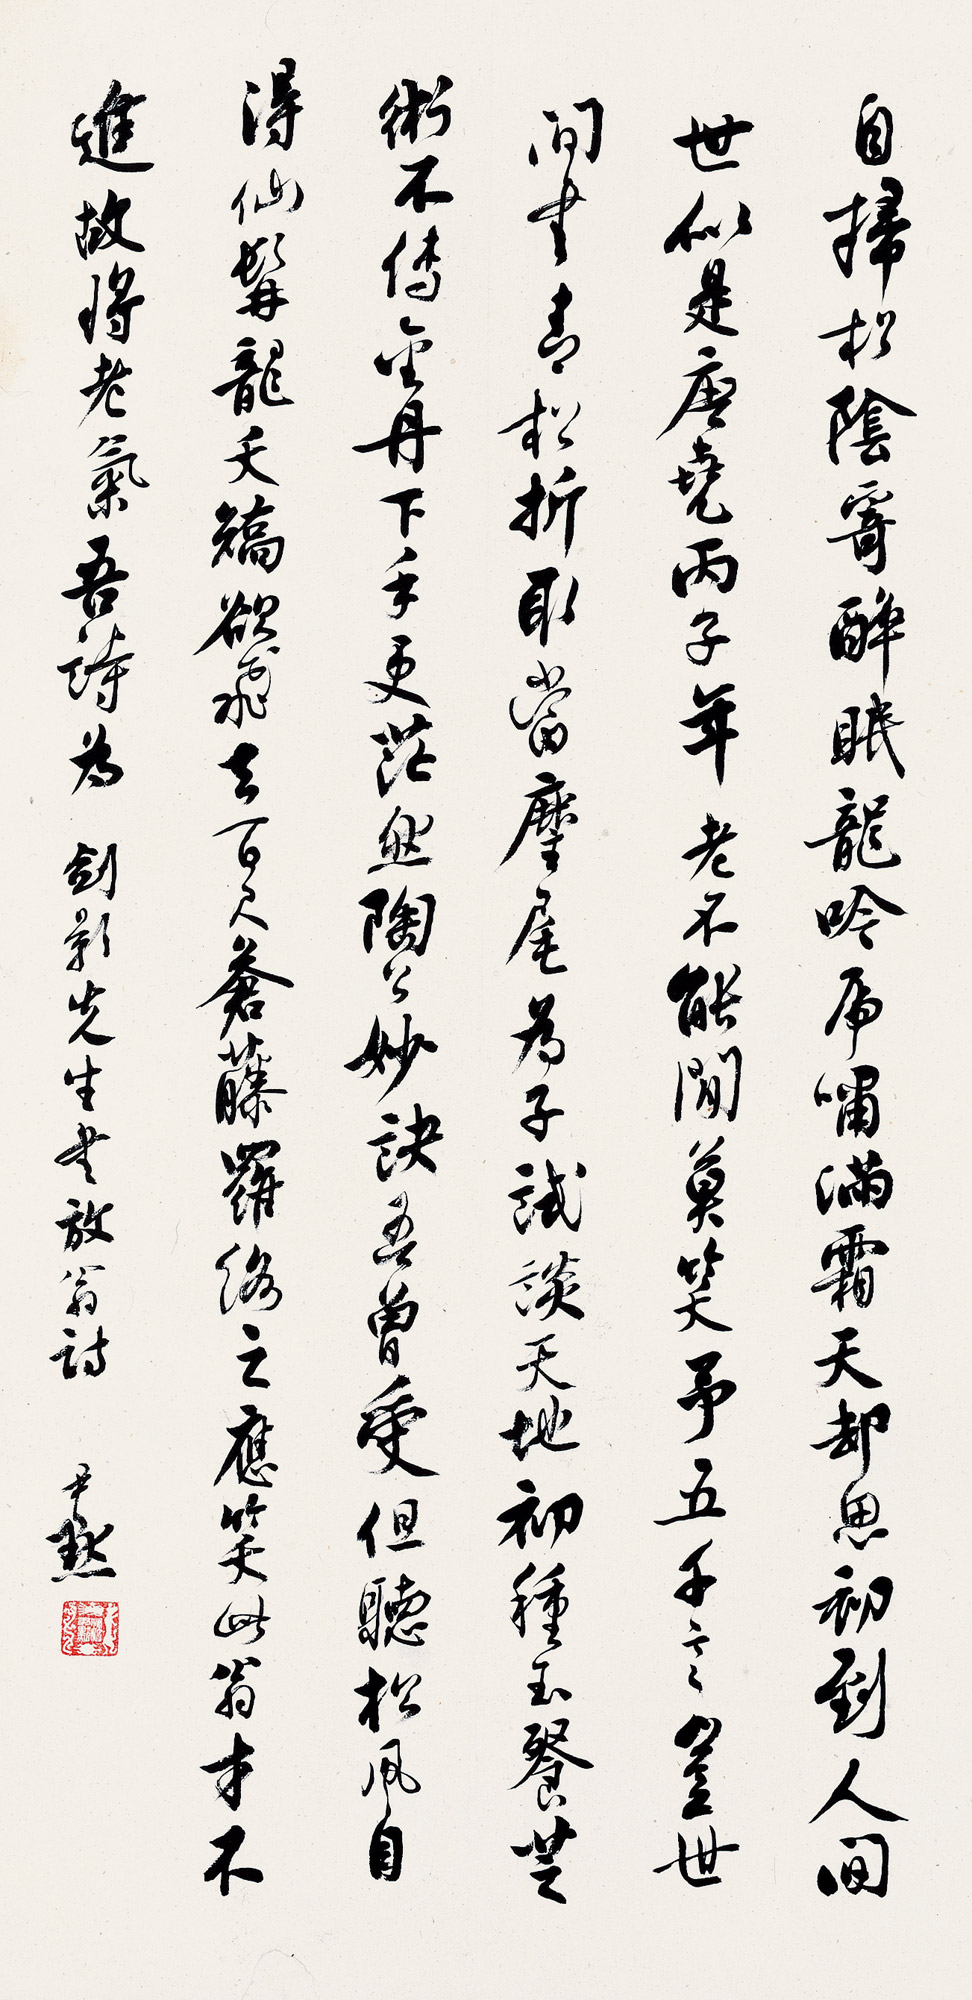 自掃松陰寄醉眠龍吟虎嘯滿霜天却思初到人間
世似是唐堯丙子年 老不能閒莫笑予五千言豈世
間書青松折取當麈尾為子試談天地初種玉餐芝
術不傳金丹下手更茫然陶公妙訣吾曾受但聽松風自
得仙髯龍夭矯欲飛去百尺蒼藤羅絡之應笑此翁才不
進故將老氣吾詩為 劍影先生書放翁詩 尹默